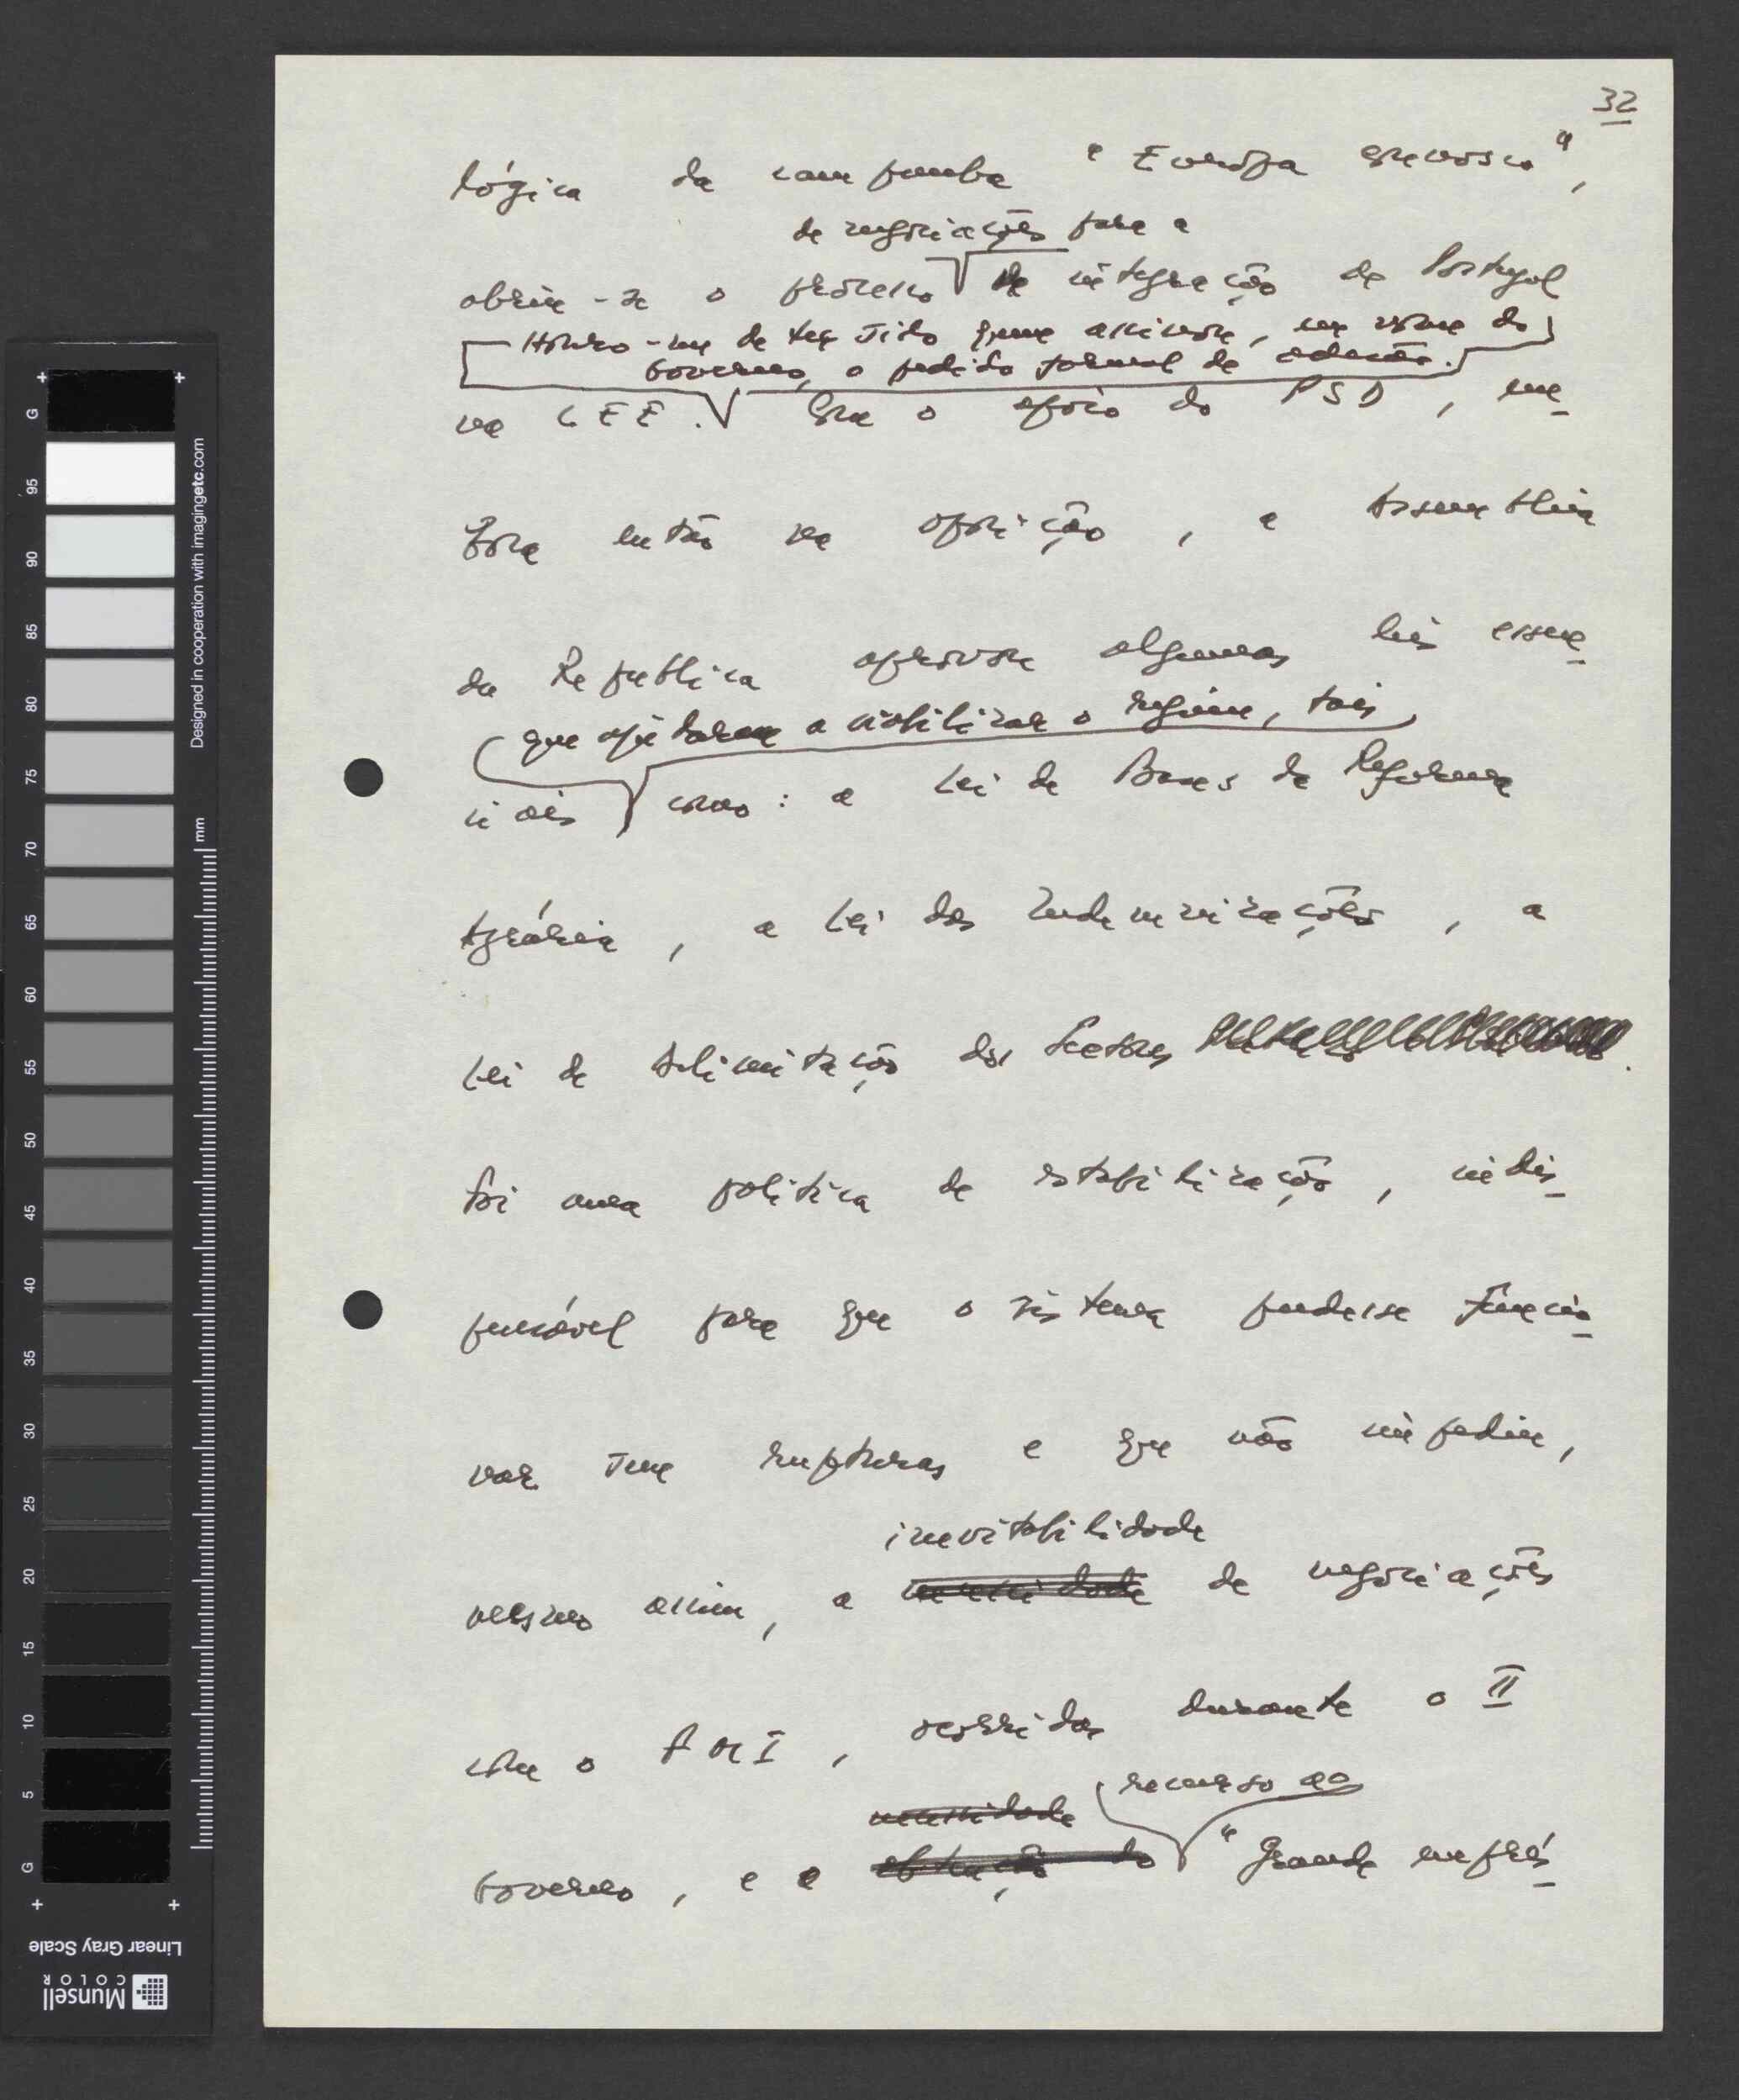 32
lógica da campanha "Europa connosco",
de negociações para a
abriu-se o processo de integração de Portugal
Honro-me de ter sido quem assinou, em nome do
Governo, o pedido formal de adesão.
na CEE. Com o apoio do PSD, em-
bora então na oposição, a Assembleia
da República aprovou algumas leis essen-
que ajudaram a viabilizar o regime, tais
ciais como: a Lei de Bases da Reforma
Agrária, a Lei das Indemnizações, a
Lei de Delimitação dos Sectores.
Foi uma política de estabilização, indis-
pensável para que o sistema pudesse funcio-
nar sem rupturas e que não impediu,
inevitabilidade
mesmo assim, a necessidade de negociações
com o FMI, ocorridas durante o II
recurso ao
necessidade
Governo, e a obtenção do "Grande emprés-
G
95
90
85
80
75
70
65
60
55
50
45
40
35
30
25
20
15
10
5
G
mm
Designed in cooperation with imagingetc.com
Linear Gray Scale
Munsell
COLOR